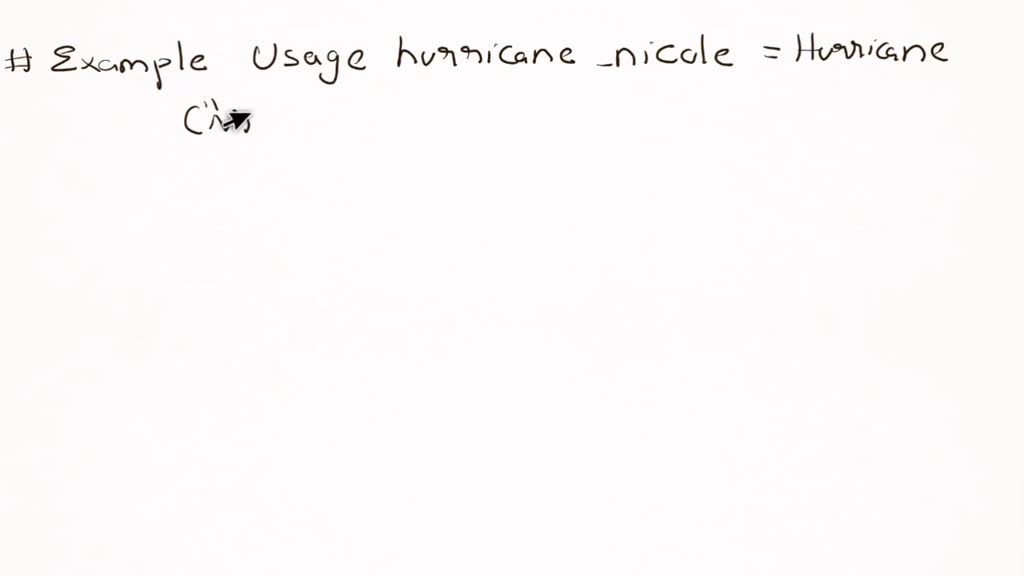 # Example Usage hurricane_nicole = Hurricane
("Ni